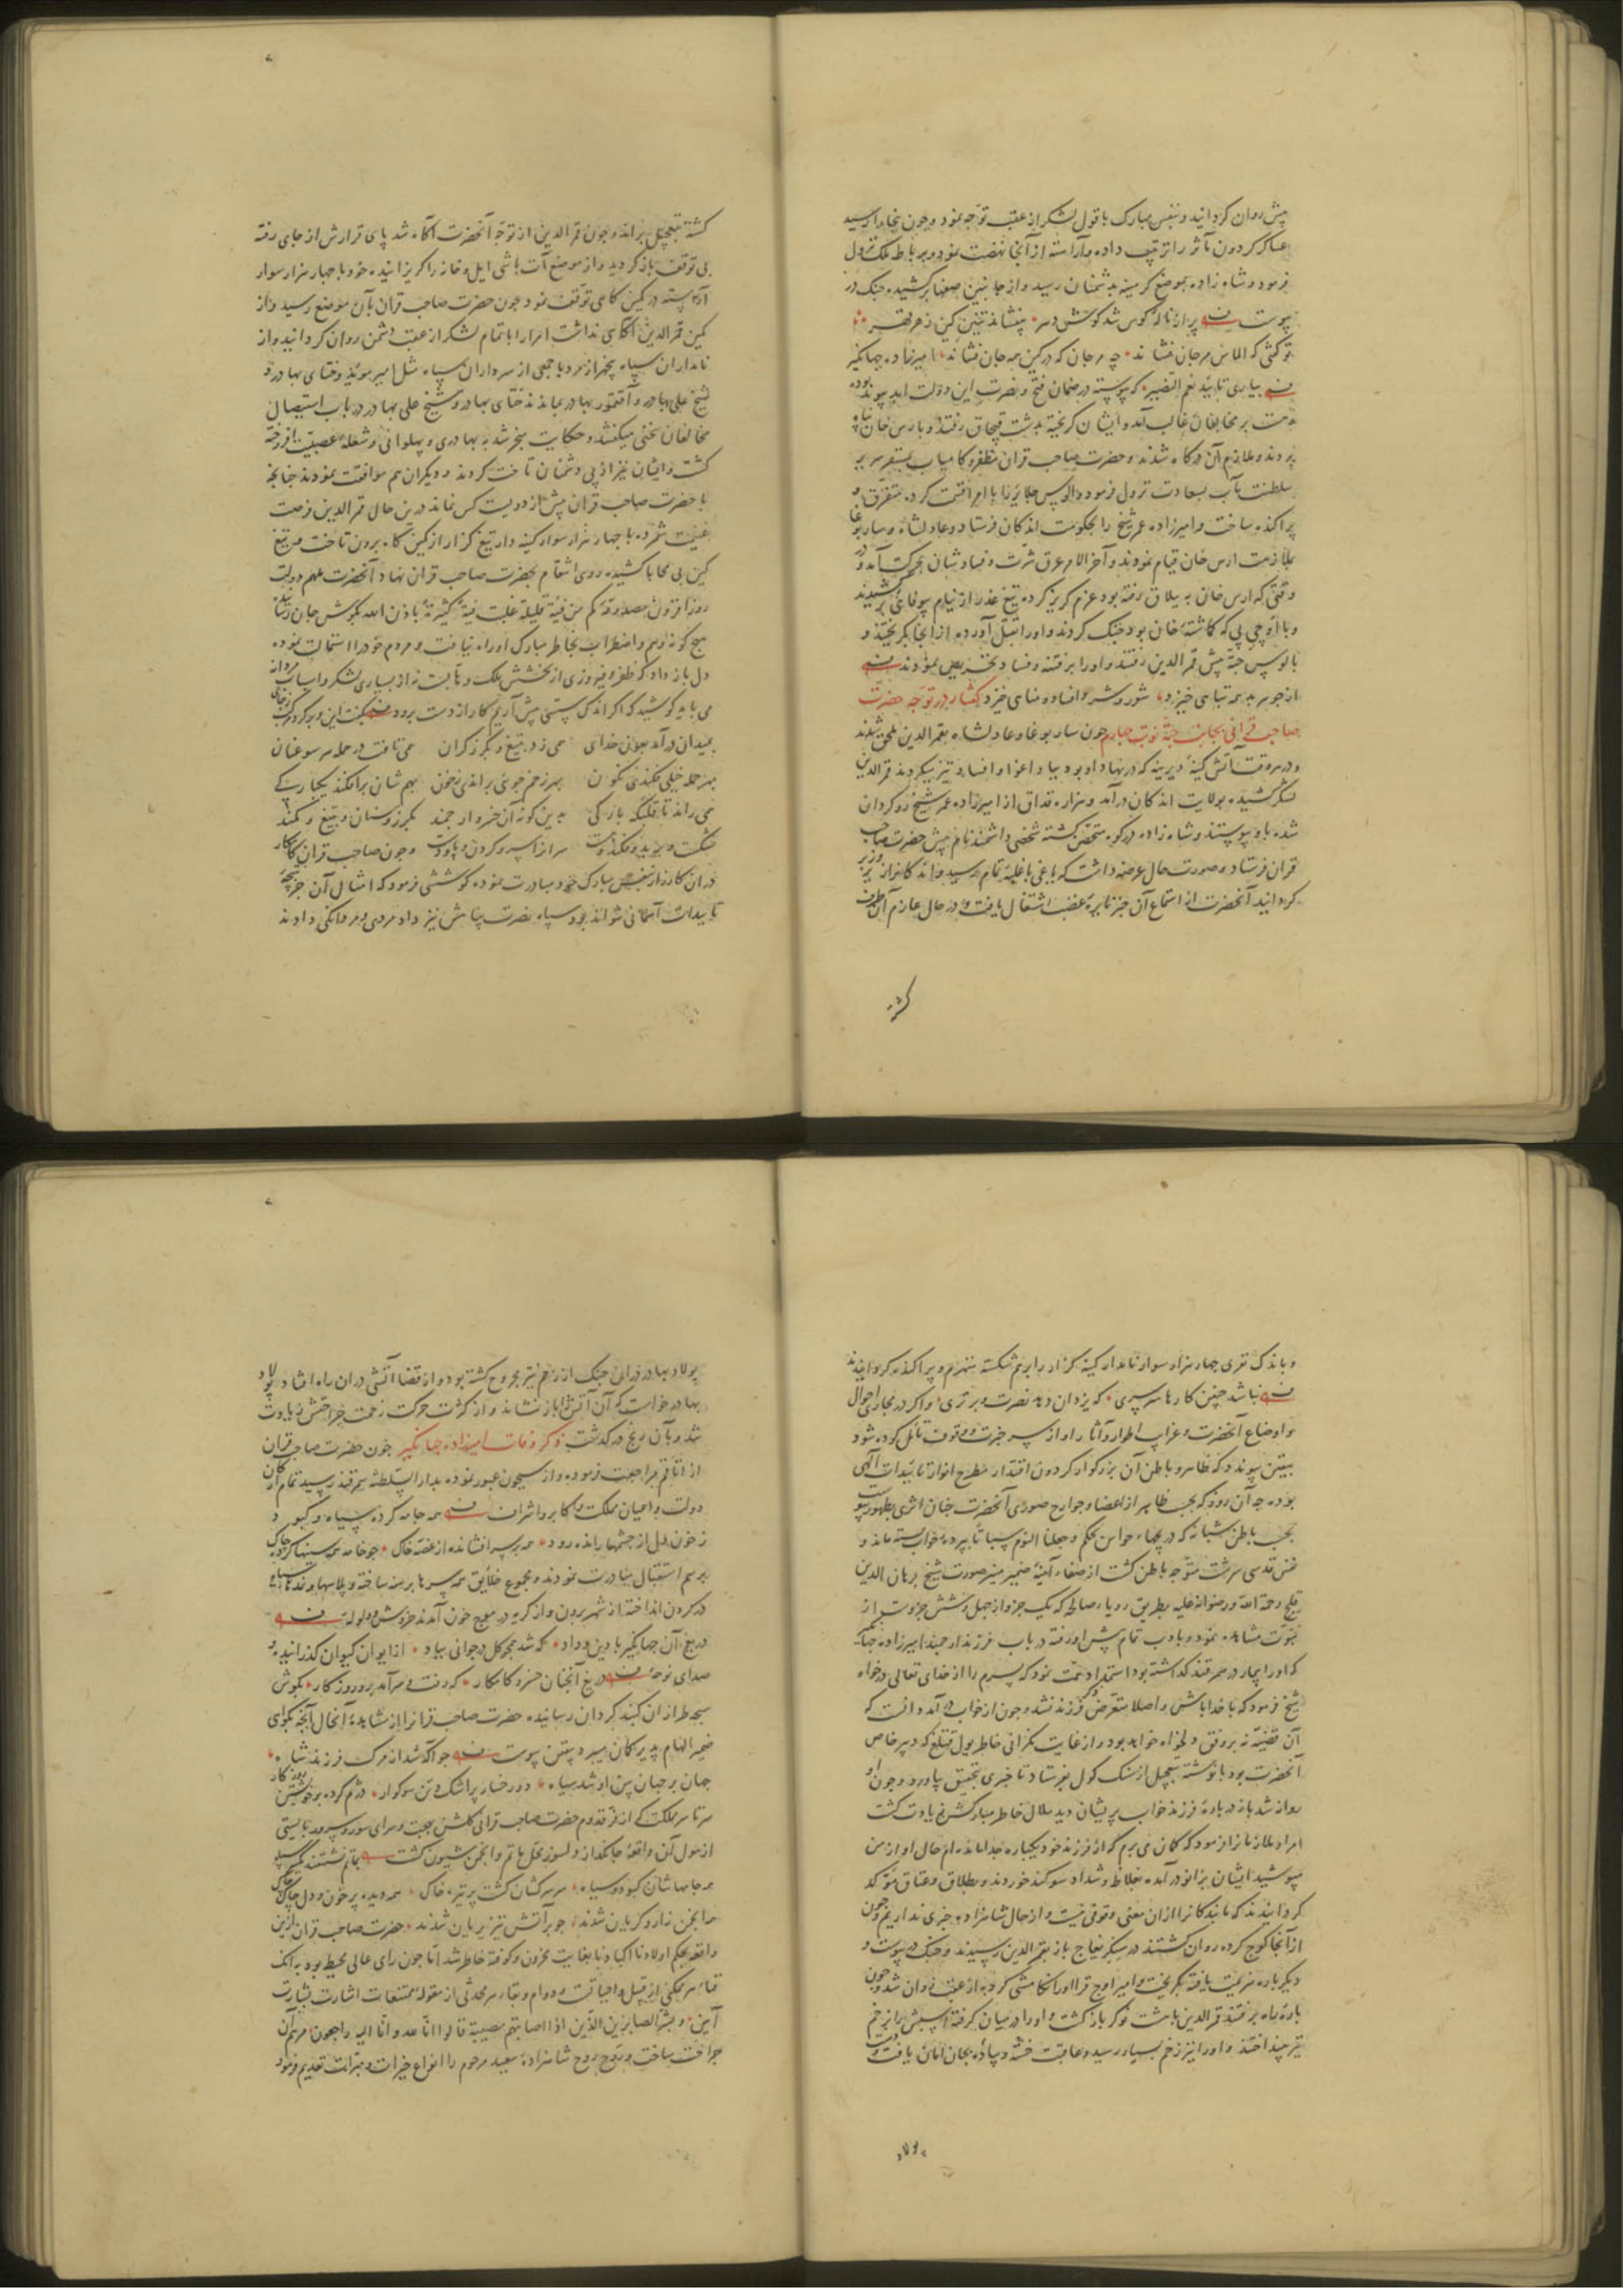 پیش روان گردانید و بنفس مبارک با قول لشکر از عقب توجه نمود و چون ببخارا رسید
عساکر گردون مآثر را ترتیب داده و آراسته از آنجا نهضت نمود و بر رباط ملک نزول
فرمود و شاه زاده بموضع کرمینه بدشمنان رسید و از جانبین صفها برکشیده جنک در
پیوست پر از نالهٔ کوس شد کوش
تو گفتی که الماس مرجان فشاند چه مرجان که در کین همه جان فشاند امیرزاده جهانگیر
بیاری تایید نعم النصیر که پیوسته در ضمان فتح و نصرت این دولت ابد پیوند بوده
است بر مخالفان غالب آمد و ایشان گریخته بدشت قبچاق رفتند و بارس خان پناه
بردند و ملازم آن درگاه شدند و حضرت صاحب قران مظفر و کامیاب بمستقر سریر
سلطنت مآب بسعادت نزول فرمود و الوس جلایر را با امرا قسمت کرده متفرق و
پراکنده ساخت و امیرزاده عمر شیخ را بحکومت اندکان فرستاد و عادلشاه و ساربوغا
بملازمت ارس خان قیام نمودند و آخر الامر عرق شرت و فساد شان بحرکت آمد و در
وقتی که ارس خان به ییلاق رفته بود عزم گریز کرده تیغ غدر از نیام بیوفائی برکشیدند
و با اوجی بی که گماشتهٔ خان بود جنک کردند و او را بقتل آورده از آنجا بگریختند و
بالوس جته پیش قمر الدین رفتند و او را بر فتنه و فساد تحریص نمودند
از جوهر بد همه تباهی خیزد شور و شر و افساد و مناهی خیزد گفتار در توجه حضرت
صاحب قرانی بجانب جته نوبت چهارم چون ساربوغا و عادلشاه بقمر الدین ملحق شدند
و در هر وقت آتش کینهٔ دیرینه که در نهاد او بود بباد اغوا و افساد تیز میکردند قمر الدین
لشکر کشیده بولایت اندکان درآمد و هزاره قداق از امیرزاده عمر شیخ رو گردان
شده باو پیوستند و شاه زاده در کوه متحصن گشته شخصی دانشمند نام پیش حضرت صاحب
قران فرستاد و صورت حال عرضه داشت که یاغی با غلبهٔ تمام رسید و اندکان را زیر و زبر
گردانید آنحضرت از استماع آن خبر نایرهٔ غضب اشتعال یافت و در حال عازم آن طرف
گشته
گشته بتعجیل براند و چون قمر الدین از توجه آنحضرت آگاه شد پای قرارش از جای رفته
بی توقف بازگردید و از موضع آت باشی ایل و خانه را گریزانیده خود با چهار هزار سوار
آراسته در کمین گاهی توقف نمود چون حضرت صاحب قران بآن موضع رسید و از
کمین قمر الدین آگاهی نداشت امرا را با تمام لشکر از عقب دشمن روان گردانید و از
نامداران سپاه پنجهزار مرد با جمعی از سرداران سپاه مثل امیر موید و ختای بهادر و
شیخ علی بهادر و آقتمور بهادر بماندند ختای بهادر و شیخ علی بهادر در باب استیصال
مخالفان سخنی میگفتند و حکایت منجر شد به بهادری و پهلوانی و شعلهٔ عصبیت افروخته
گشت و ایشان نیز از پی دشمنان تاخت کردند و دیگران هم موافقت نمودند چنانچه
با حضرت صاحب قران بیش از دویست کس نماند درین حال قمر الدین فرصت
غنیمت شمرده با چهار هزار سوار کینه دار تیغ گزار از کمین گاه برون تاخت و تیغ
کین بی محابا کشیده روی انتقام بحضرت صاحب قران نهاد آنحضرت ملهم دولت
روز افزون مصدوقه کم من فئة قلیلة غلبت فئة کثیرة باذن الله بگوش جان رسانید
هیچ گونه وهم و اضطراب بخاطر مبارک او راه نیافت و مردم خود را استمالت نموده
دل باز داد که ظفر و فیروزی از بخشش ملک وهابست نه از بسیاری لشکر و اسباب مردانه
می باید کوشید که اگر اندک سستی پیش آریم کار از دست برود بگفت این و برکرد مرکب ز جای
بمیدان درآمد بعون خدای همی زد بتیغ و بگرز گران همی تافت در حمله هر سو عنان
بهر حمله خیلی فکندی نگون بهر زخم جوئی براندی ز خون بهم شان برافکند یکبارگی
همی راند تا قلبگه بارگی بدین گونه آن خسرو ارجمند بگرز و سنان و بتیغ و کمند
شکست و برید و فکند و ببست سران را سر و گردن و پا و دست و چون صاحب قران کامکار
در ان کارزار بنفس مبارک خود مبادرت نموده کوششی فرمود که امثال آن جز نتیجهٔ
تاییدات آسمانی نتواند بود سپاه نصرت پناهش نیز داد مردی و مردانگی دادند
و باندک نفری چهار هزار سوار نامدار کینه گزار را برهم شکسته منهزم و پراکنده گردانیدند
نباشد چنین کارها سرسری که یزدان دهد نصرت و برتری و اگر در مجاری احوال
و اوضاع آنحضرت و غرایب اطوار و آثار او از سر خبرت و وقوف تأمل کرده شود
بیقین پیوندد که ظاهر و باطن آن بزرگوار گردون اقتدار مطرح انوار تائیدات آلهی
بوده چه آن روز که بحسب ظاهر از اعضا و جوارح صوری آنحضرت چنان اثری بظهور پیوست
بحسب باطن شبانه که دریچهاء حواس بحکم و جعلنا النوم سباتا بپرده خواب بسته ماند و
نفس قدسی سرشت متوجه باطن گشت از صفاء آینهٔ ضمیر منیر صورت شیخ برهان الدین
قلیج رحمة الله و رضوانه علیه بطریق رویاء صالحه که یک جزو از چهل و شش جزوست از
نبوت مشاهده نمود و بادب تمام پیش او رفته در باب فرزند ارجمند امیرزاده جهانگیر
که او را بیمار در سمرقند گذاشته بود استمداد همت نمود که پسرم را از خدای تعالی درخواه
شیخ فرمود که با خدا باش و اصلا متعرض ذکر فرزند نشد و چون از خواب درآمد دانست که
آن قضیه نه بر وفق دلخواه خواهد بود و از غایت نگرانی خاطر یول قتلغ که دبیر خاص
آنحضرت بود با نوشته بتعجیل از سنک کول بفرستاد تا خبری بتحقیق بیاورد و چون او
روانه شد باز در بارهٔ فرزند خواب پریشان دید ملال خاطر مبارکش زیادت گشت
امرا و ملازمانرا فرمود که گمان می برم که از فرزند خود یکباره جدا مانده ام حال او از من
مپوشید ایشان بزانو درآمده بغلاظ و شداد سوگند خوردند و بطلاق و عتاق موکد
گردانیدند که ما بندگانرا از ان معنی وقوفی نیست و از حال شاهزاده خبری نداریم و چون
از آنجا کوچ کرده روان گشتند در سنگزیغاج باز بقمر الدین رسیدند و جنک درپیوست و
دیگرباره هزیمت یافته بگریخت و امیر اوج قرا او را تکامشی کرده از عقب روان شد و چون
پارهٔ راه برفتند قمر الدین با هشت نوکر بازگشت و او را در میان گرفتند اسپش را بزخم
تیر بینداختند و او را نیز زخم بسیار رسید و عاقبت خسته و پیاده بجان امان یافت و
پولاد
پولاد بهادر در ان جنک از زخم تیر مجروح گشته بود و از قضا آتشی در ان راه افتاد پولاد
بهادر خواست که آن آتش را باز نشاند و از کثرت حرکت زحمت جراحتش زیادت
شد و بآن رنج درگذشت ذکر وفات امیرزاده جهانگیر چون حضرت صاحب قران
از اتاقم مراجعت فرموده و از سیحون عبور نموده بدار السلطنهٔ سمرقند رسید تمام ارکان
دولت و اعیان مملکت و اکابر و اشراف همه جامه کرده سیاه و کبود
ز خون دل از چشمها رانده رود همه بر سر افشانده از غصه خاک چو خامه همه سینها کرده چاک
برسم استقبال مبادرت نمودند و مجموع خلایق همه سرها برهنه ساخته و پلاسها و نمدهاء سیاه
در گردن انداخته از شهر برون و از گریه در موج خون آمدند خروش و ولوله
دریغ آن جهانگیر با دین و داد که شد همچو گل در جوانی بباد از ایوان کیوان گذرانیده و
صدای نوحهٔ دریغ آنچنان خسرو کامکار که رفت و سرآمد برو روزگار بگوش
سجده طرازان گنبد گردان رسانیده حضرت صاحب قرانرا از مشاهدهٔ آنحال آنچه بگوای
ضمیر الهام پذیر گمان میبرد بیقین پیوست چو آگه شد از مرک فرزند شاه
جهان بر جهان بین او شد سیاه دو رخسار پر اشک و تن سوگوار دژم کرده بر خویشتن روزگار
سرتاسر مملکت که از فر قدوم حضرت صاحب قرانی گلشن بهجت و سرای سور و سرور بایستی
از هول آن واقعهٔ جانگداز دلسوز محفل ماتم و انجمن شیون گشت بماتم نشستند یکسر سپاه
همه جامها شان کبود و سیاه سر سرکشان گشت پر تیره خاک همه دیده پر خون و دل چاک چاک
همه انجمن زار و گریان شدند چو بر آتش تیز بریان شدند حضرت صاحب قران ازین
واقعه بحکم اولادنا اکبادنا بغایت محزون و کوفته خاطر شد اما چون رای عالی محیط بود بآنک
فناء هر ممکنی از قبیل واجباتست و دوام و بقاء هر محدثی از مقولهٔ ممتنعات اشارت بشارت
آیین و بشر الصابرین الذین اذا اصابتهم مصیبة قالوا انا لله و انا الیه راجعون مرهم آن
جراحت ساخت و ترویح روح شاهزادهٔ سعید مرحوم را انواع خیرات و مبرات تقدیم فرمود